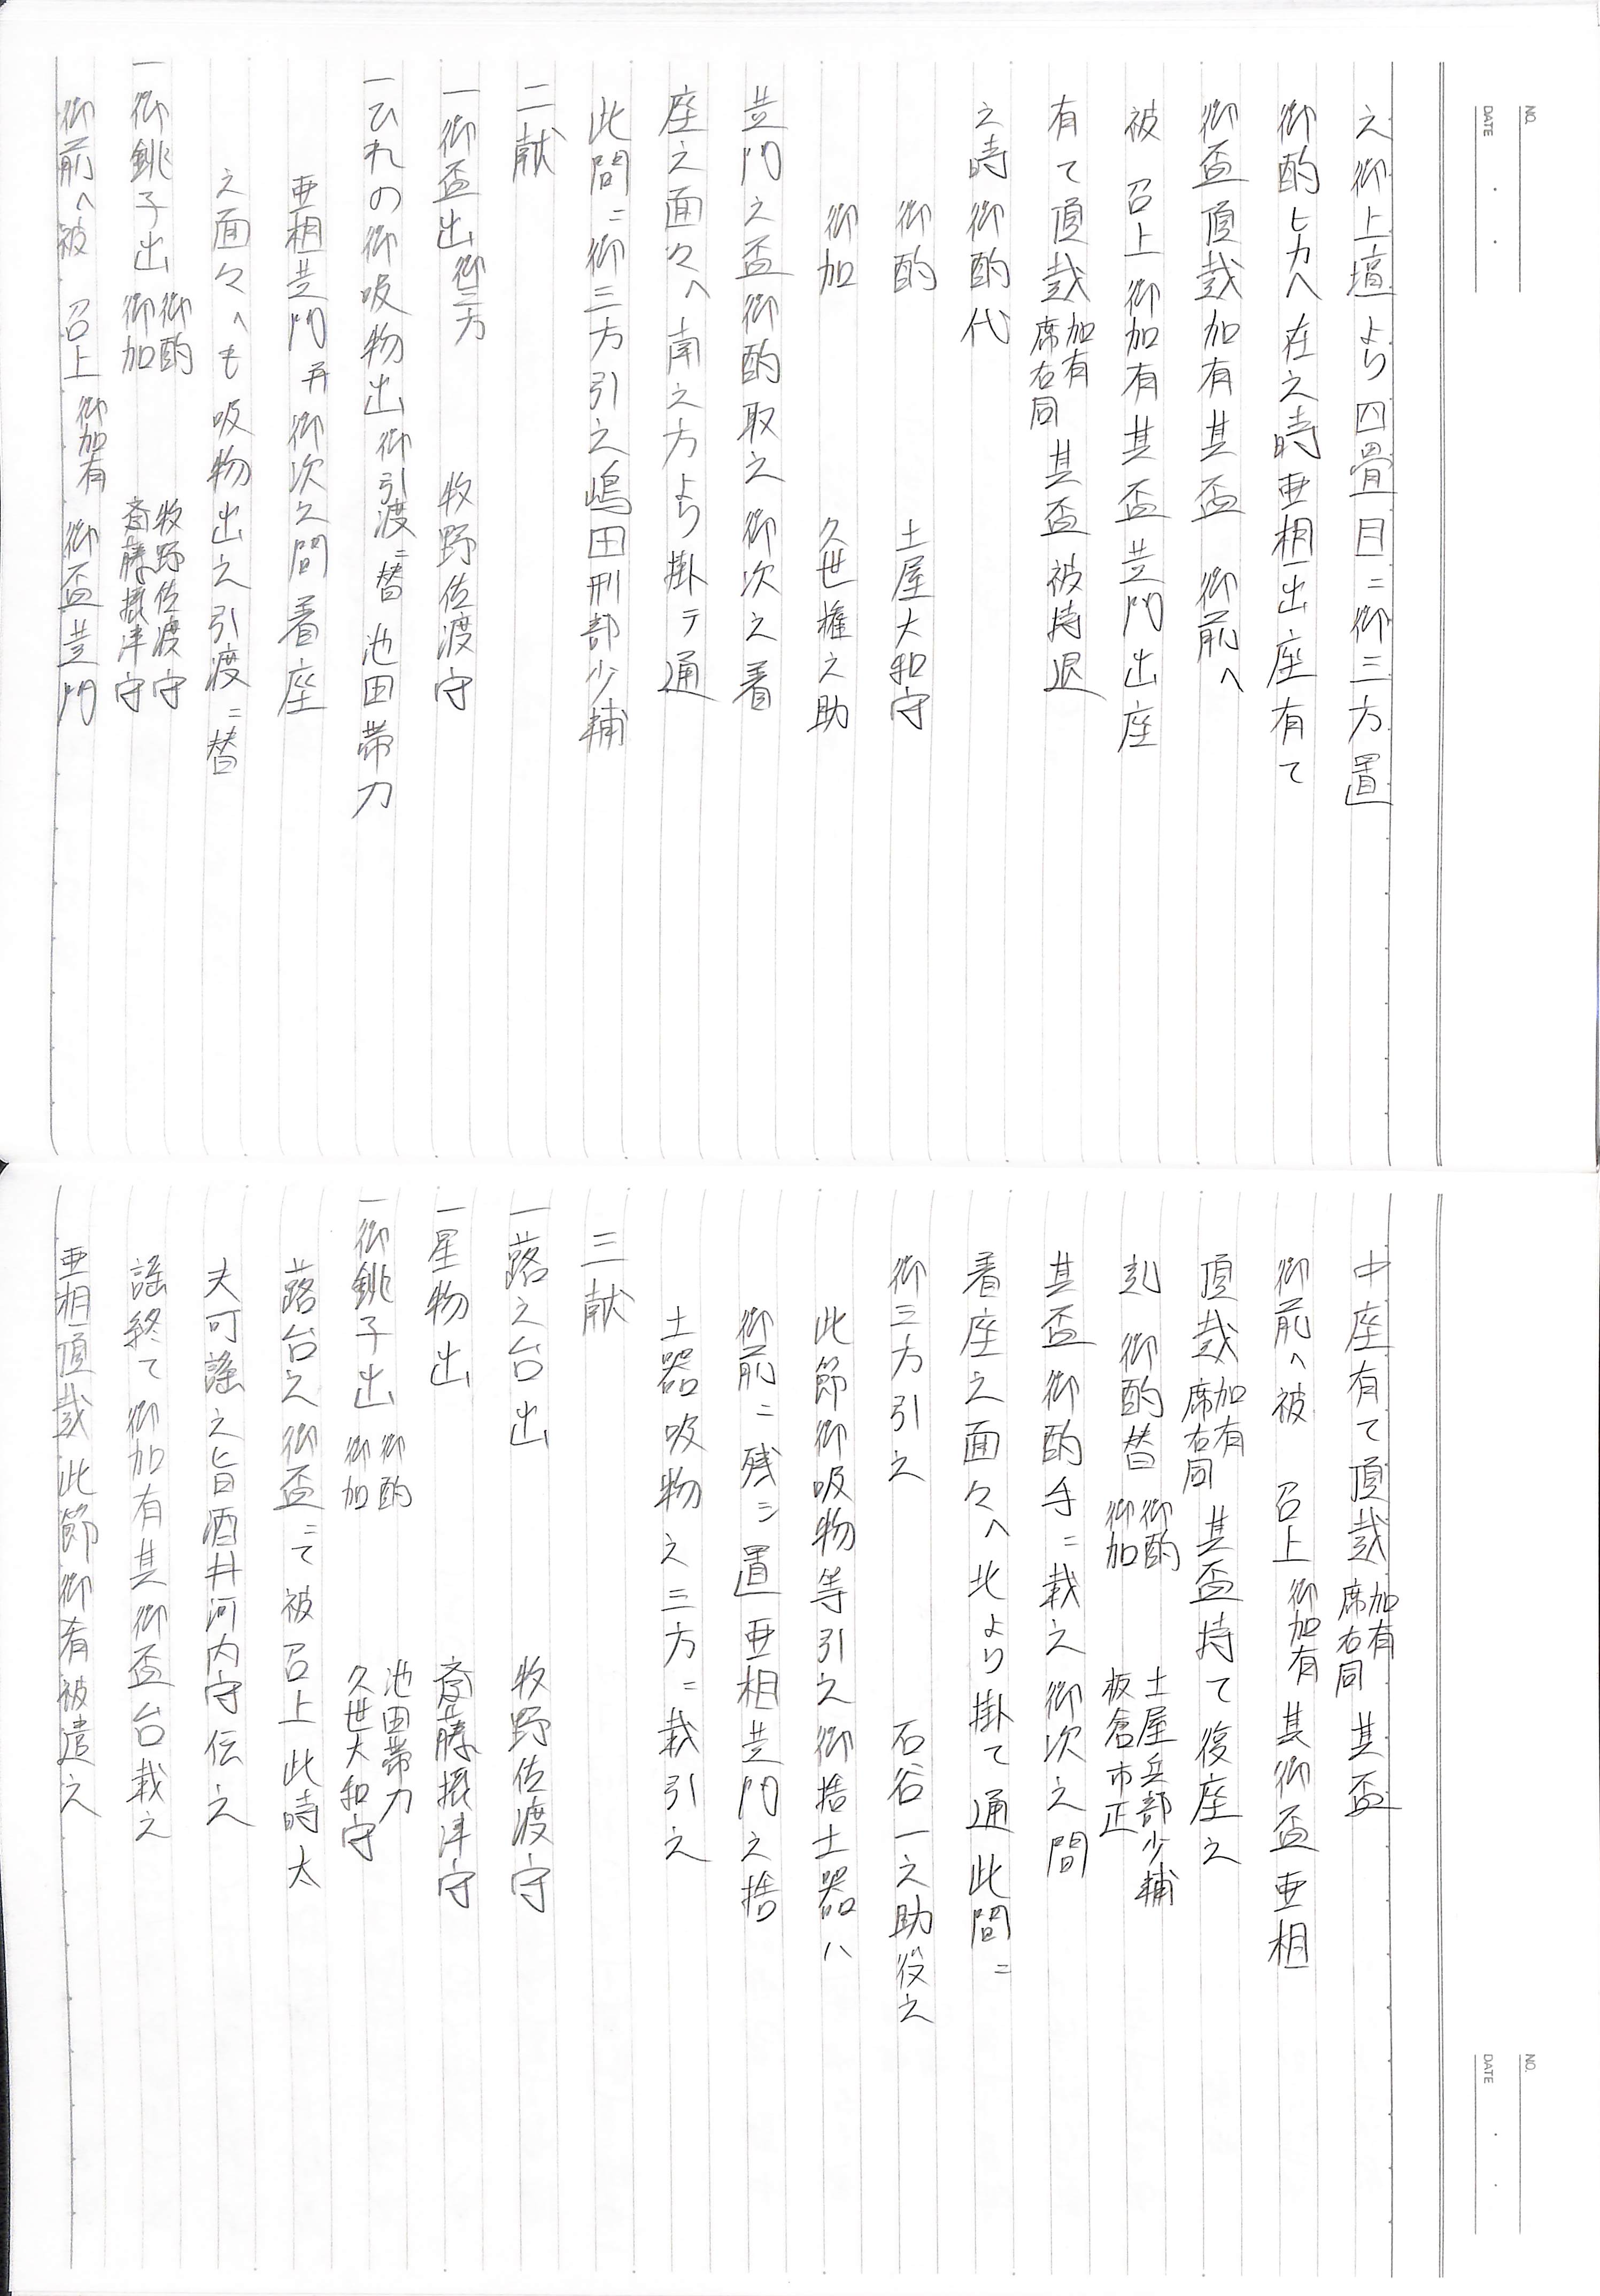 NO.
DATE
之御上壇より四畳目ニ御三方置
御酌ヒカヘ在之時亜相出座有て
御盃頂戴加有其盃 御前へ
被 召上御加有其盃黄門出座
有て頂戴加有席右同其盃被持退
之時御酌代
御酌 土屋大和守
御加 久世権之助
黄門之盃御酌取之御次之着
座之面々へ南之方より掛テ通
此間ニ御三方引之嶋田刑部少輔
二献
一御盃出御三方 牧野佐渡守
一ひれの御吸物出御引渡ニ替 池田帯刀
亜相黄門并御次之間着座
之面々へも吸物出之引渡ニ替
一御銚子出 御酌 牧野佐渡守
御加 斎藤摂津守
御前へ被 召上御加有 御盃黄門
NO.
DATE
中座有て頂戴加有席右同其盃
御前へ被 召上御加有其御盃亜相
頂戴加有席右同其盃持て復座之
刻 御酌替 御酌 土屋兵部少輔
御加 板倉市正
其盃御酌手ニ載之御次之間
着座之面々へ北より掛て通此間ニ
御三方引之 石谷一之助役之
此節御吸物等引之御捨土器ハ
御前ニ残シ置亜相黄門之捨
土器吸物之三方ニ載引之
三献
一蕗之台出 牧野佐渡守
一星物出 斎藤摂津守
一御銚子出 御酌 池田帯刀
御加 久世大和守
蕗台之御盃ニて被召上此時太
夫可謡之旨酒井河内守伝之
謡終て御加有其御盃台載之
亜相頂戴此節御肴被遣之